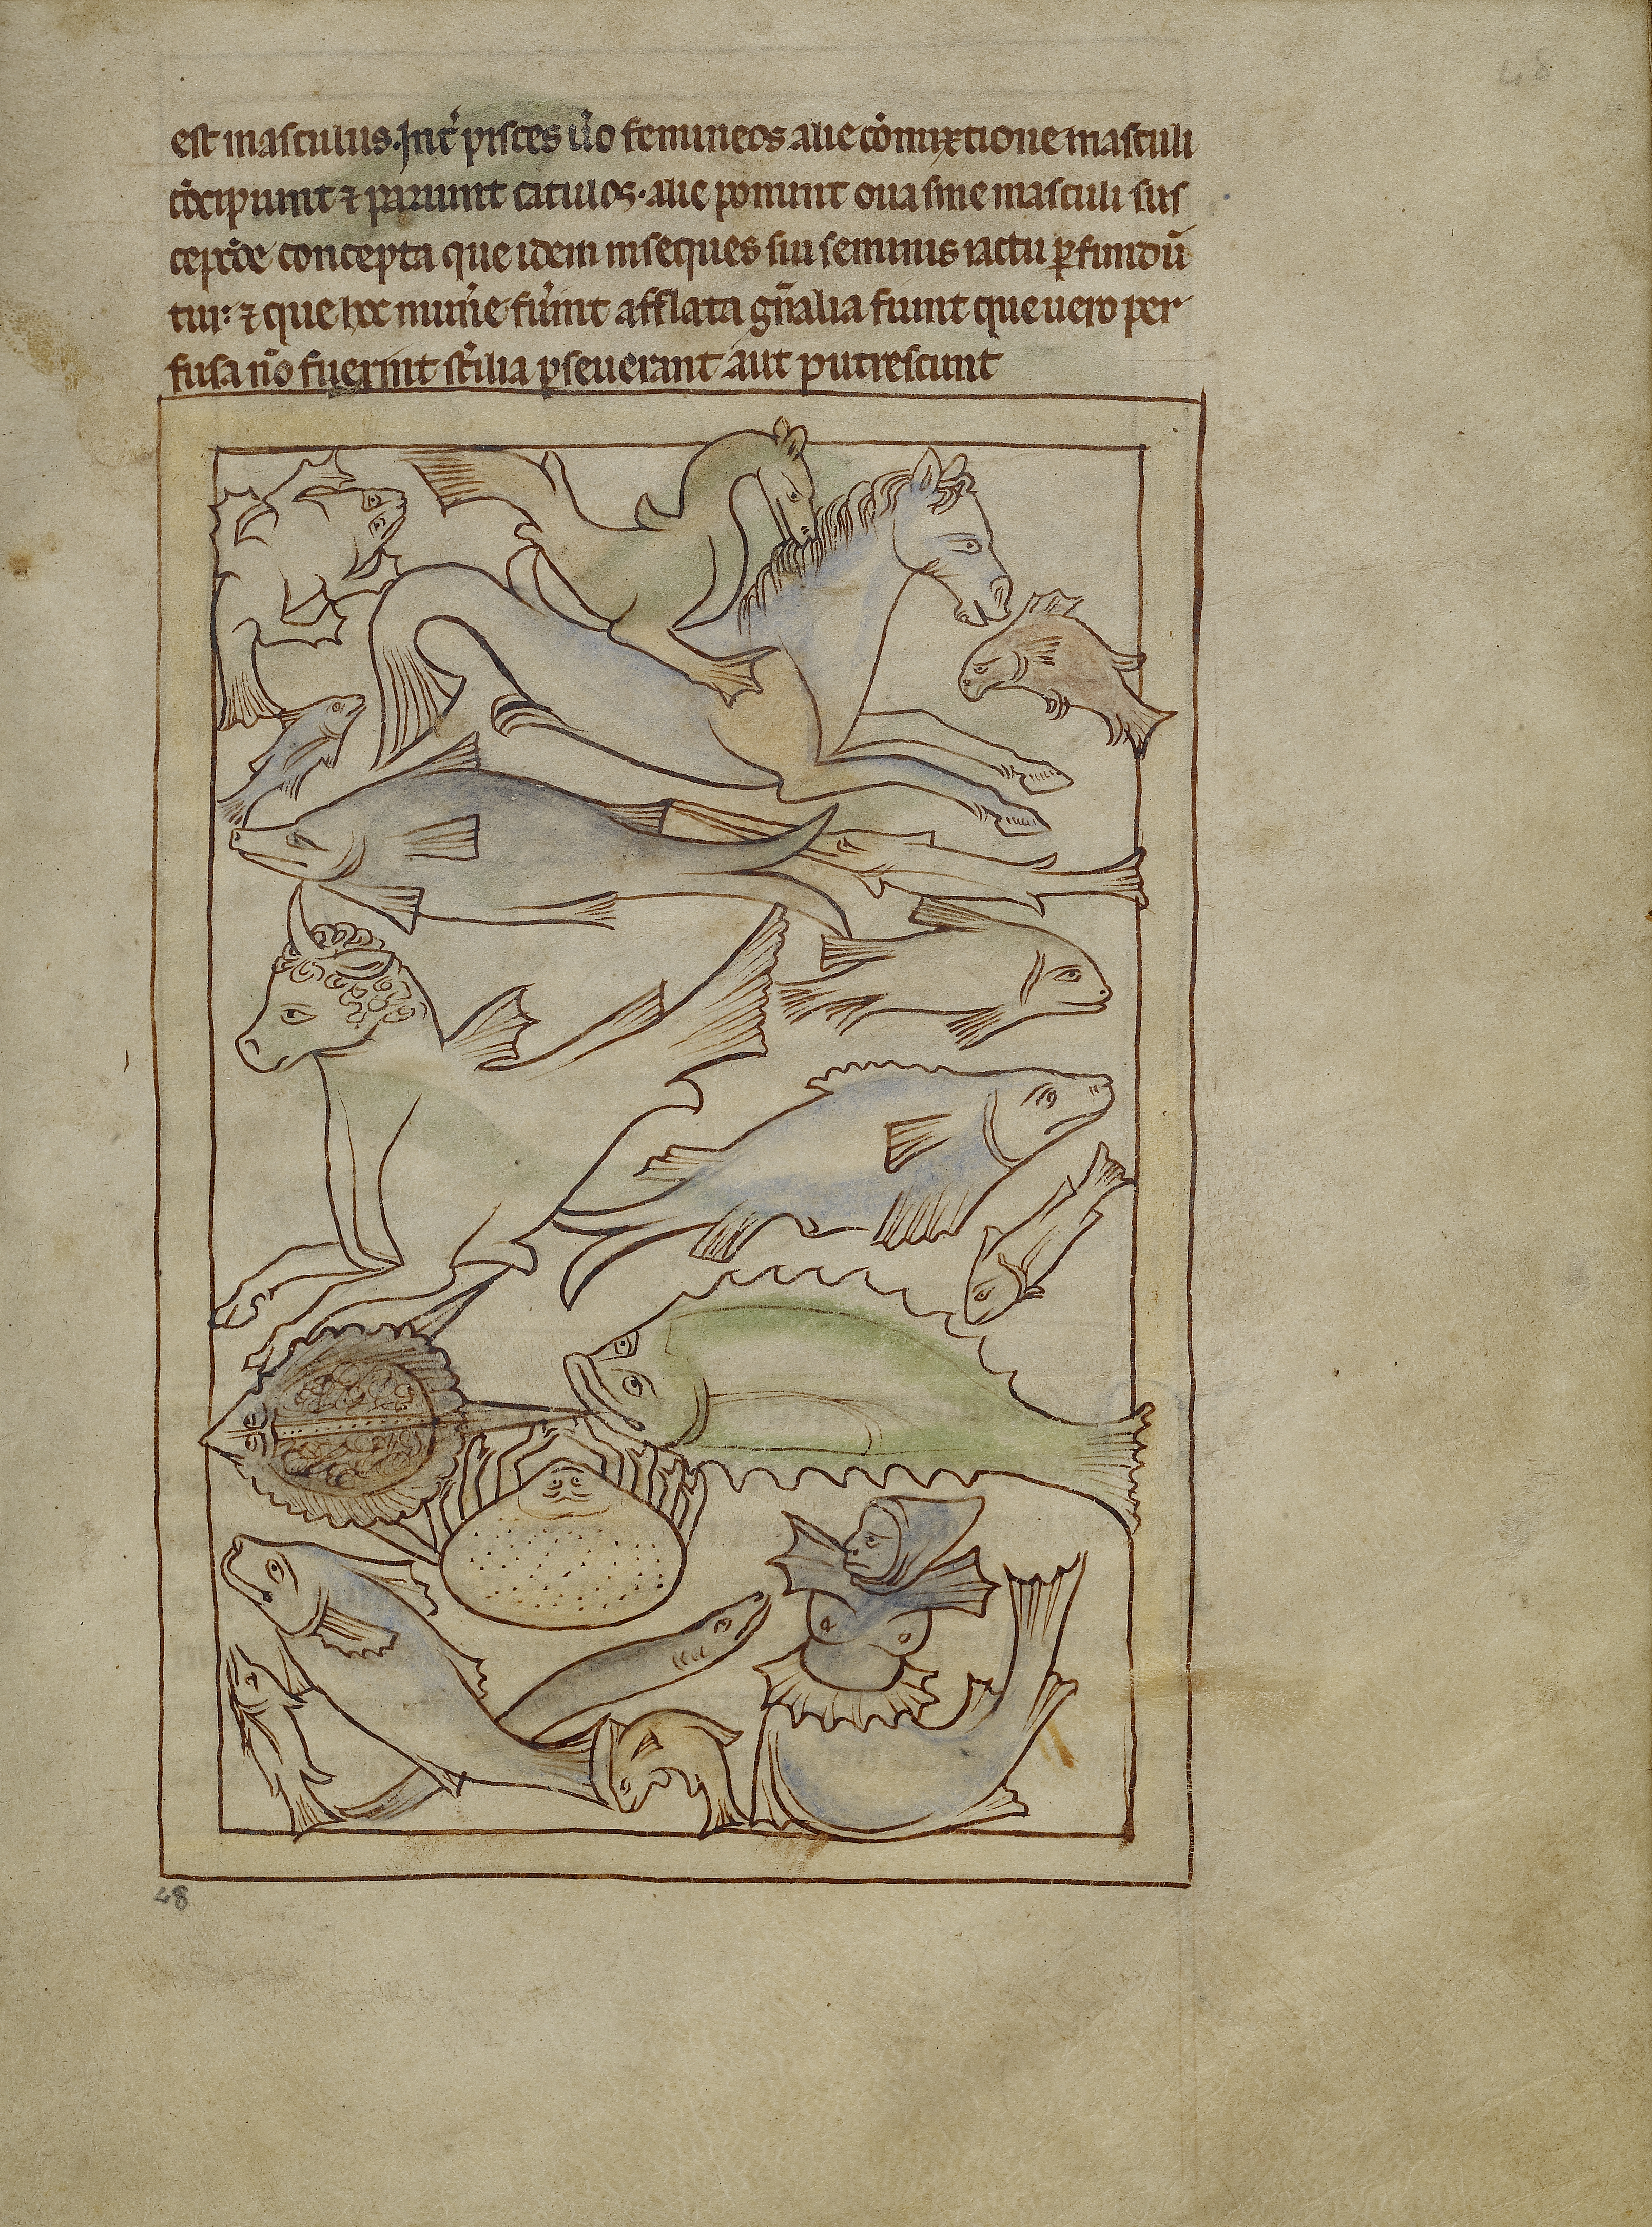 48
est masculus. Int̉ pisces ũo femineos alie cõmixtione masculi
cõcipiunt ⁊ pariunt catulos. alie ponunt oua sine masculi sus
concepta que idem inseques sui seminis iactu ꝑfundũ
tur: ⁊ que hoc mun̉e fũint afflata gñalia fiunt que uero per
fusa nõ fuerint st̉ilia ꝑseuerant aut putrescunt
48